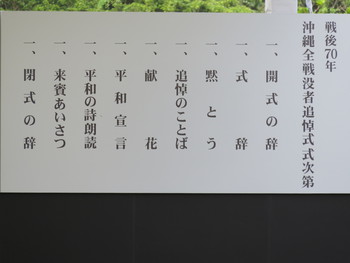 戦後70年
沖縄全戦没者追悼式式次第
一、開式の辞
一、式辞
一、黙とう
一、追悼のことば
一、献花
一、平和宣言
一、平和の詩朗読
一、来賓あいさつ
一、閉式の辞